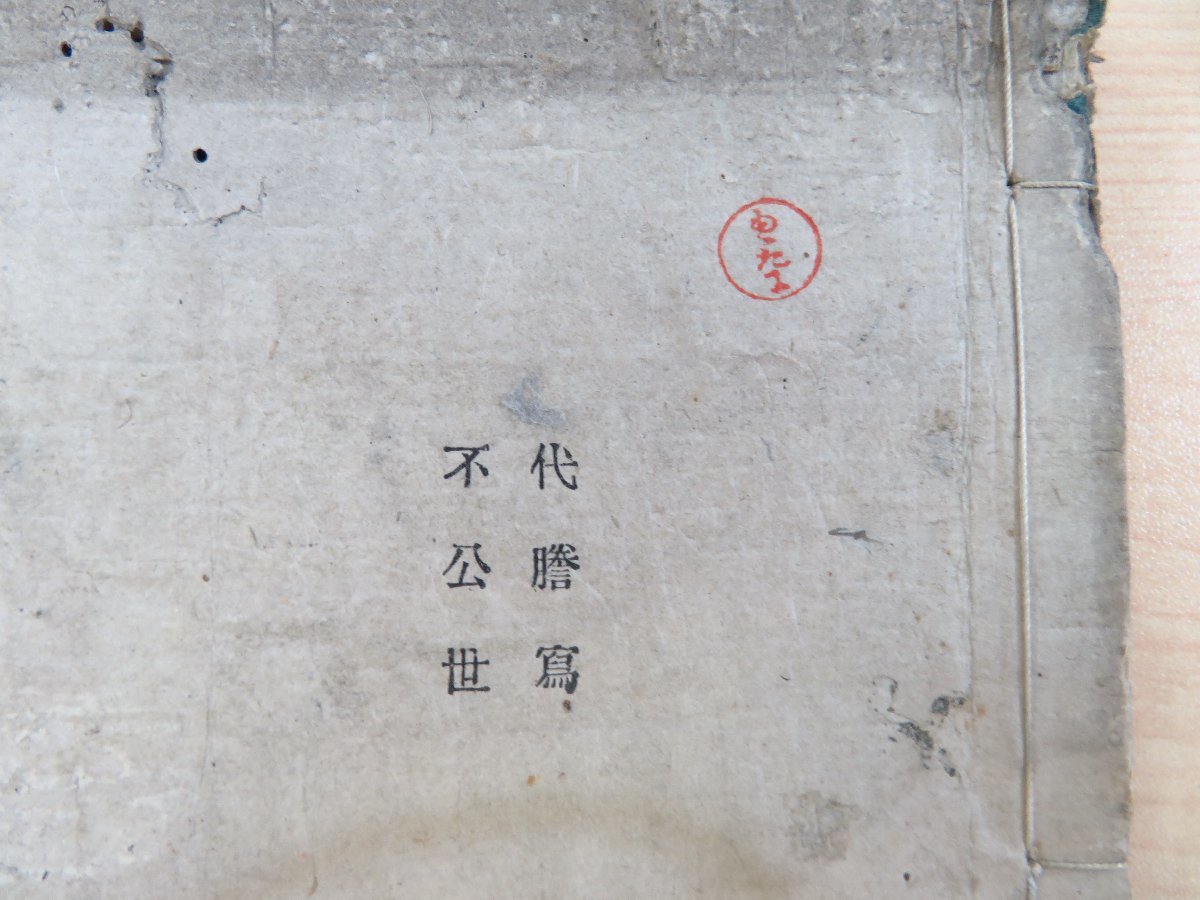 代謄寫
不公世